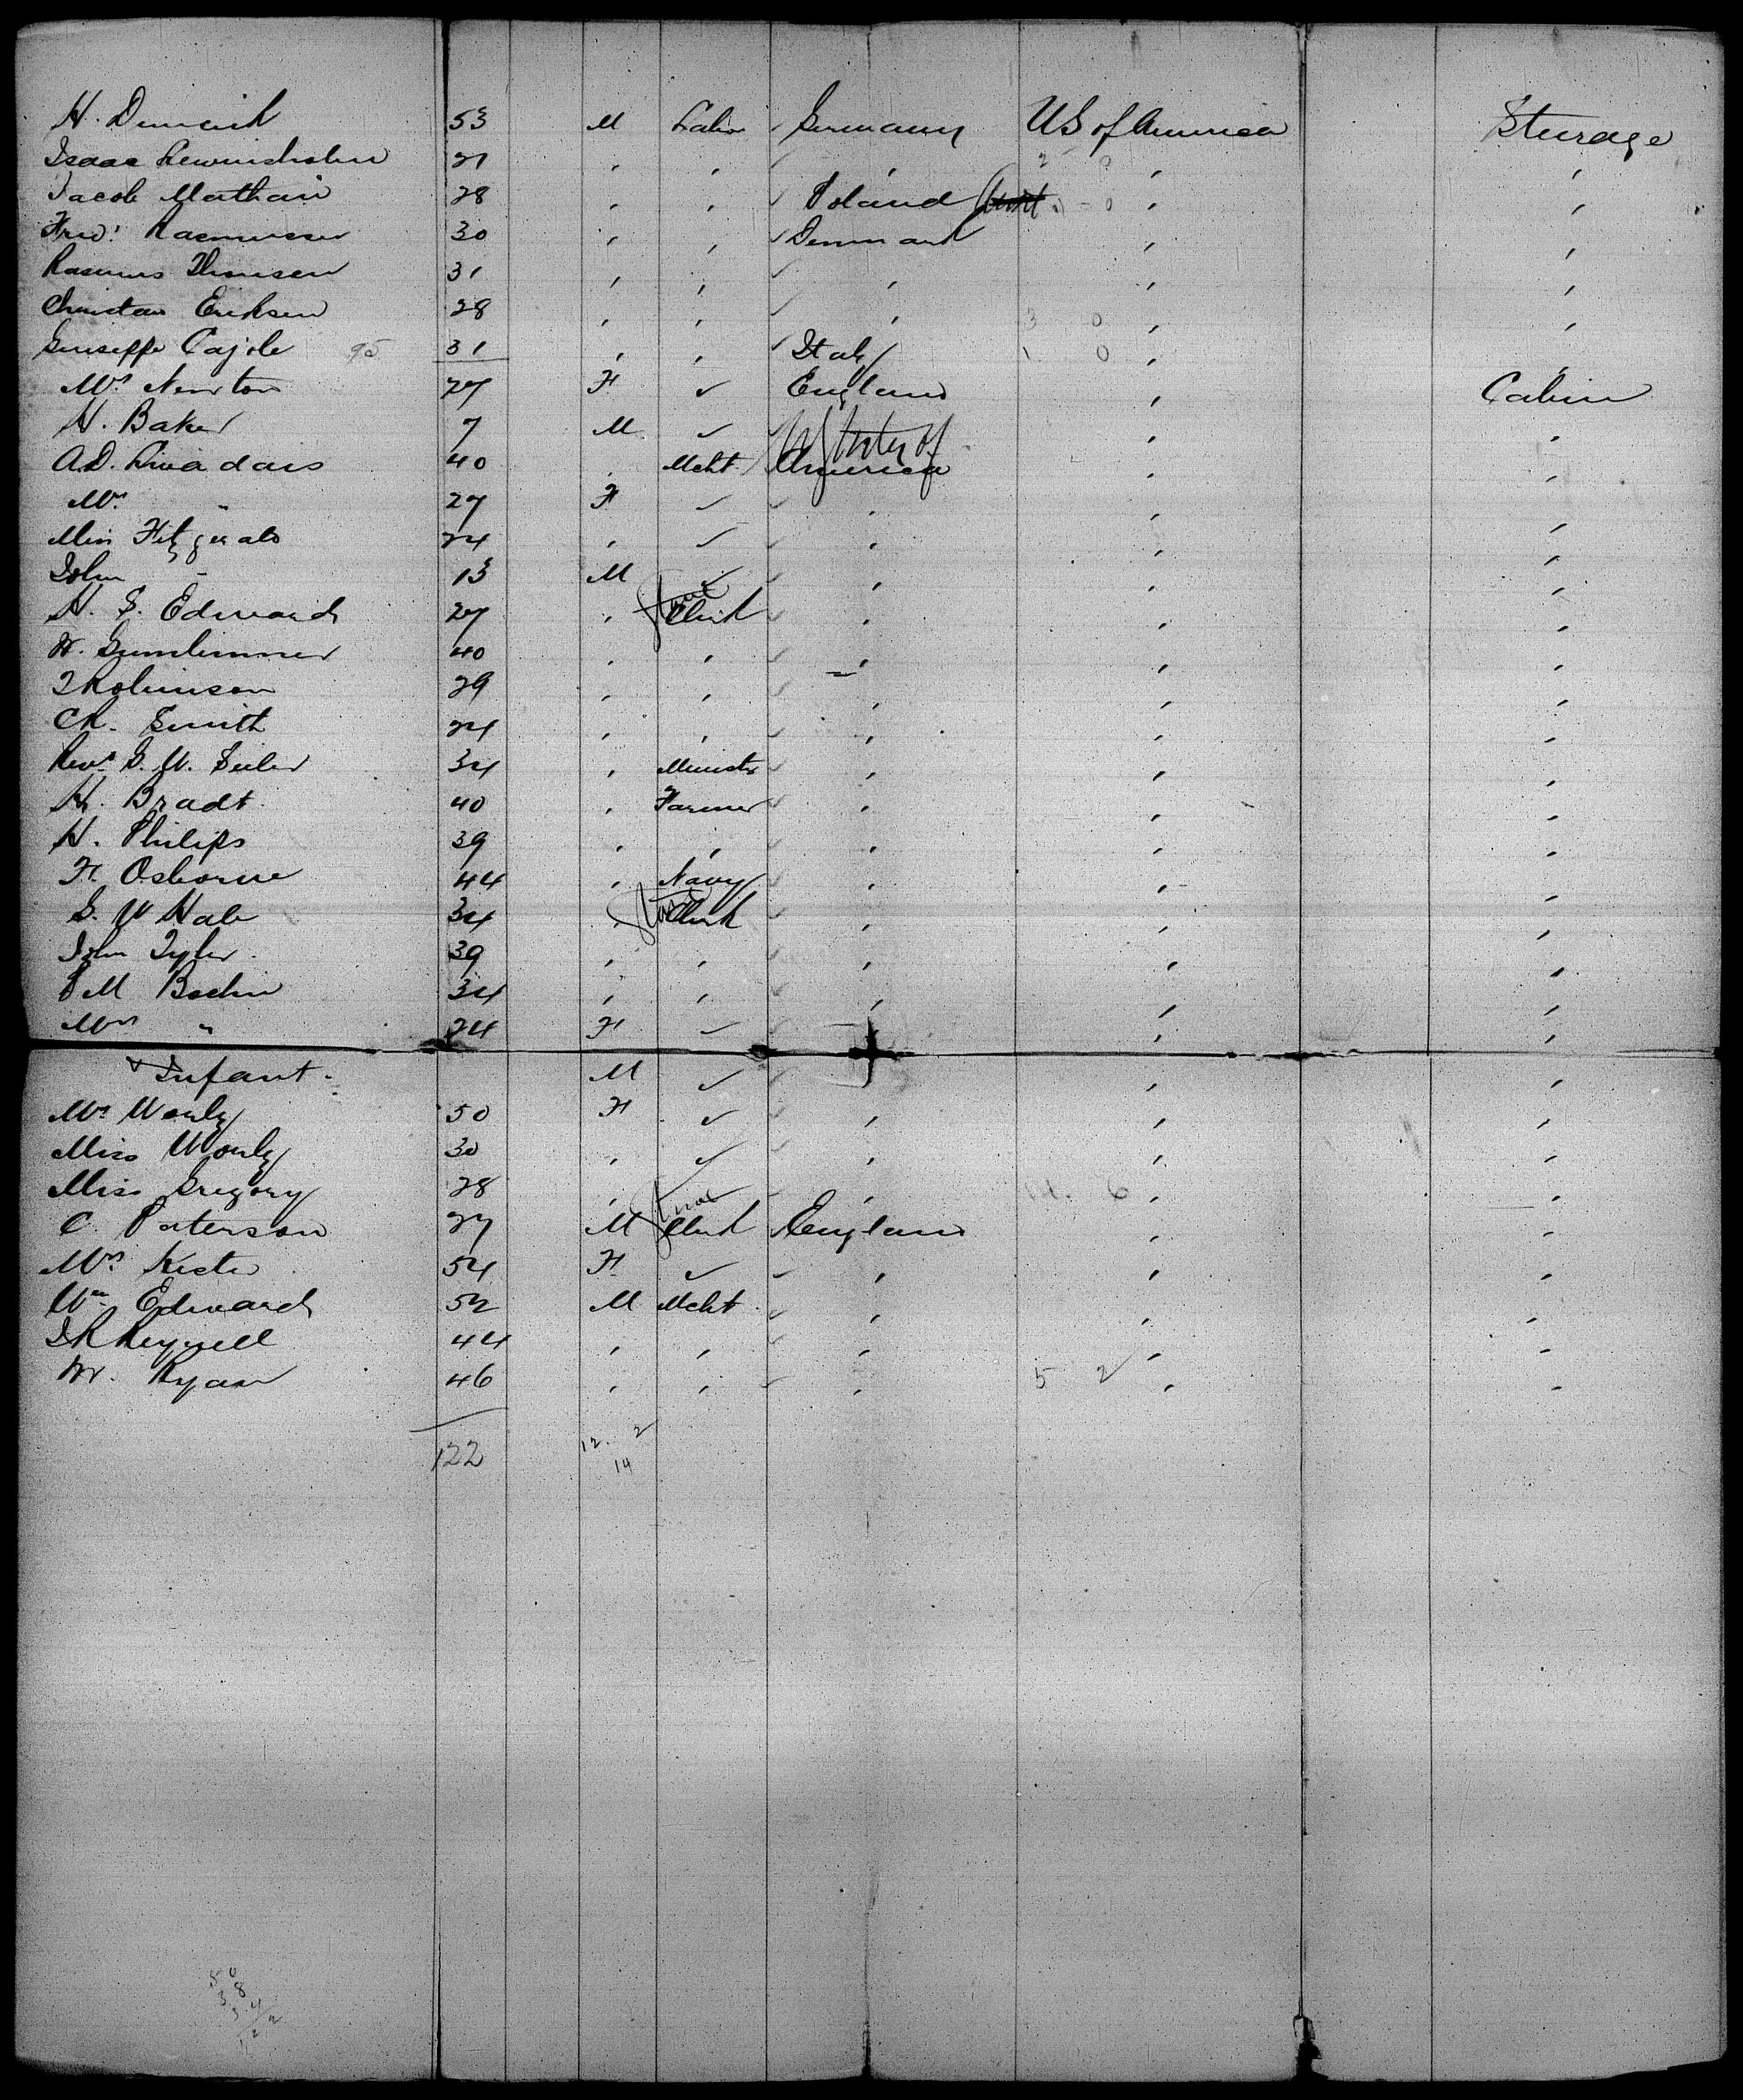 H. Dimcich 53 M Labor Germany US of America Steerage
Isaac Lewinsholm 21 , , , 2 0 , ,
Jacob Mathair 28 , , Poland 0 , ,
Fred. Rasmussen 30 , , Denmark , ,
Rasmus Thomsen 31 , , , , ,
Christian Eriksen 28 , , , 3 0 , ,
Guiseppe Cajole 95 31 , , Italy 1 0 , ,
Mrs Newton 27 F ✓ England , Cabin
H. Baker 7 M ✓ , ,
States of
A.D. Livadais 40 , Mcht America , ,
Mrs " 27 F ✓ , , ,
Miss Fitzgerald 24 , ✓ , , ,
John - 13 M ✓ , , ,
H. S. Edwards 27 , Clerk , , ,
40 , , , , ,
J Robinson 29 , , , , ,
CR. Smith 24 , , , , ,
Revd G. W. Seiler 34 , Ministr , , ,
H. Bradt 40 , Farmer , , ,
H. Philips 39 , , , , ,
F. Osborne 44 , Navy , , ,
G. W Hale 34 , Clerk , , ,
John Tyler 39 , , , , ,
P M Boehm 34 , , , , ,
Mrs " 24 F ✓ , ,
& Infant - M ✓ , ,
Mrs Wouly 50 F ✓ , , ,
Miss Wouly 30 , ✓ , , ,
Miss Gregory 28 , , 6 , ,
C. Paterson 27 M Clerk England , ,
Mrs Kister 54 F ✓ , , ,
Wm Edwards 52 M Mcht , , ,
44 , , , , ,
W. Ryan 46 , , , 5 2 , ,
122 12. 2
14
50
38
34
122